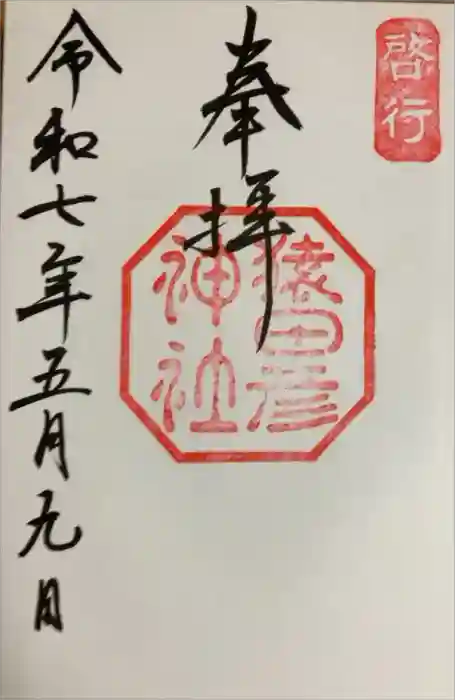 啓行
奉拝
猿田彦
神社
令和七年五月九日